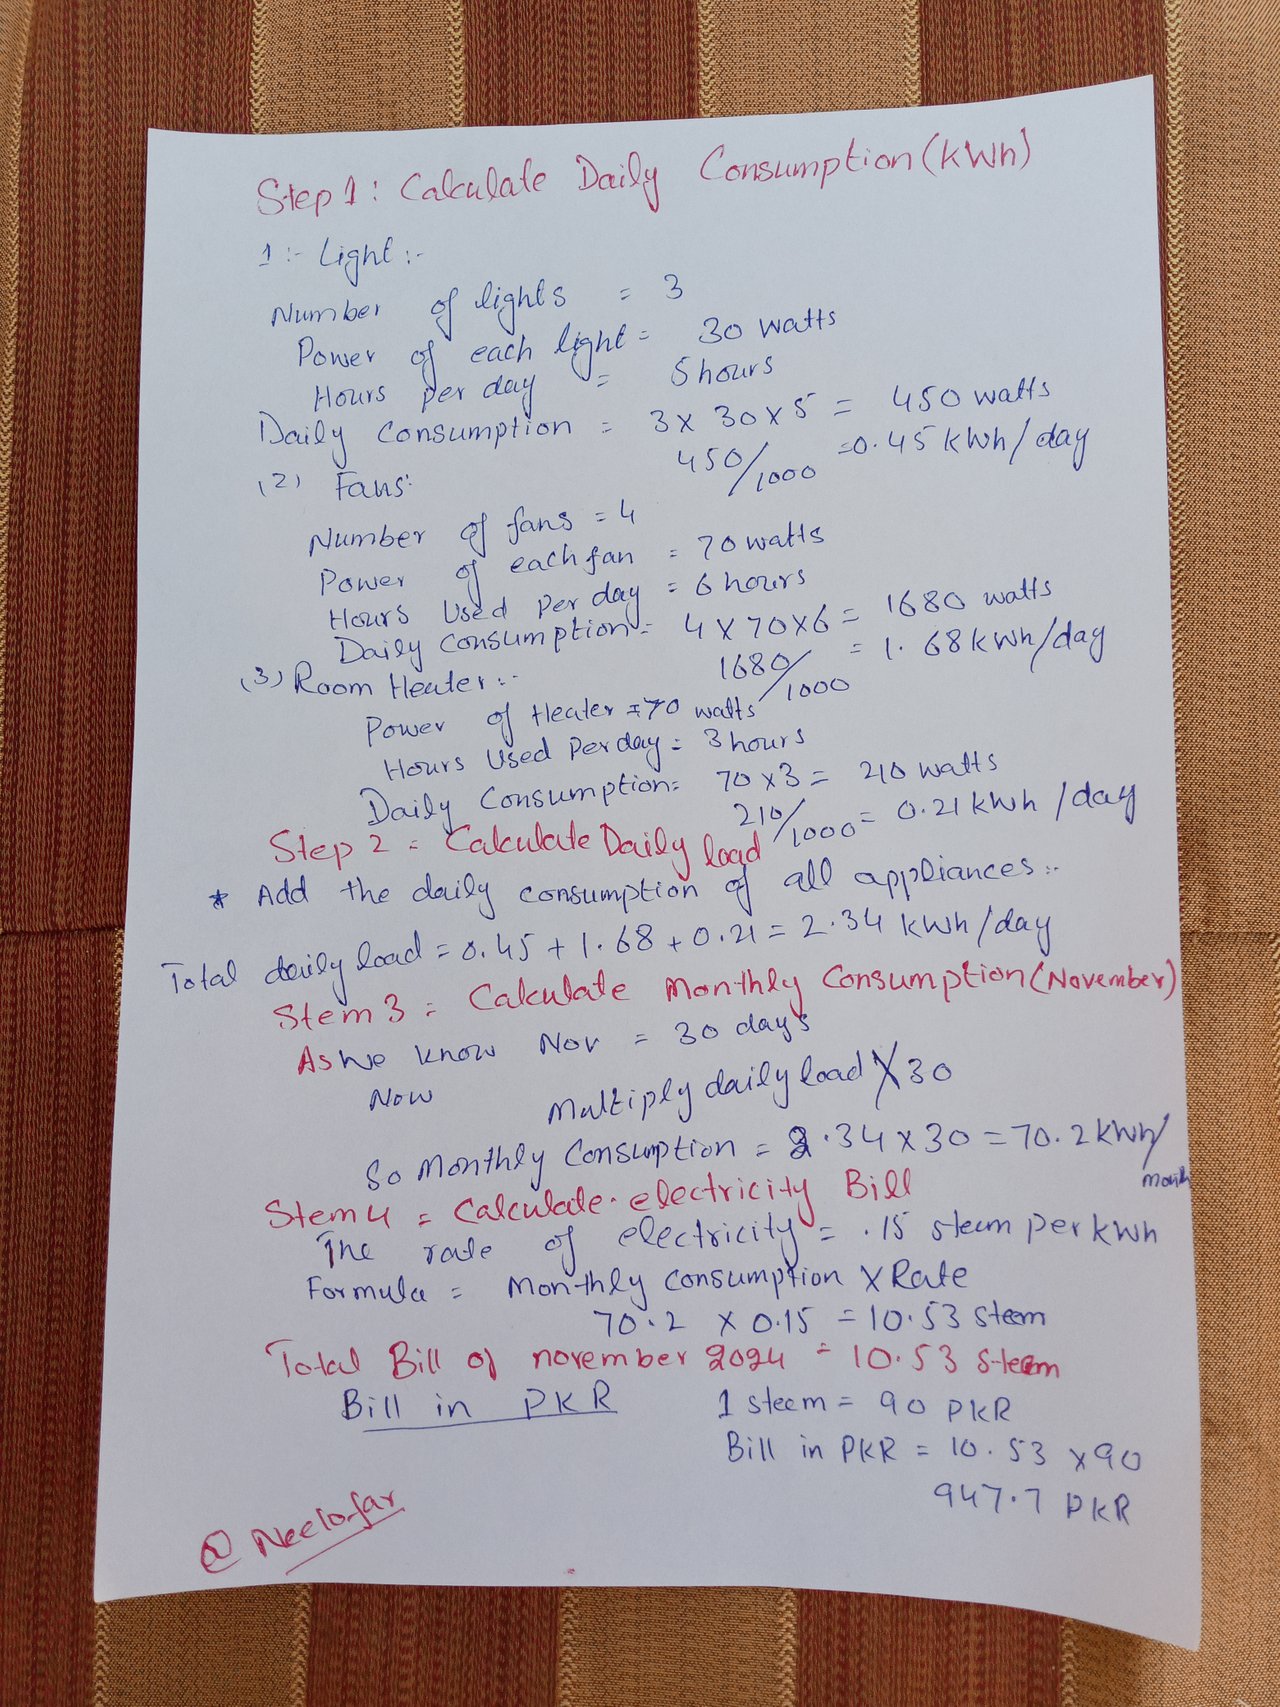 Step 1 : Calculate Daily Consumption (kWh)
1 :- Light :-
Number of lights = 3
Power of each light = 30 watts
Hours per day = 5 hours
Daily Consumption = 3 x 30 x 5 = 450 watts
450/1000 = 0.45 kWh/day
(2) Fans:
Number of fans = 4
Power of each fan = 70 watts
Hours Used Per day = 6 hours
Daily Consumption = 4 x 70 x 6 = 1680 watts
1680/1000 = 1.68 kWh/day
(3) Room Heater :-
Power of Heater = 70 watts
Hours Used Per day = 3 hours
Daily Consumption = 70 x 3 = 210 watts
210/1000 = 0.21 kWh /day
Step 2 = Calculate Daily load
* Add the daily consumption of all appliances :-
Total daily load = 0.45 + 1.68 + 0.21 = 2.34 kWh/day
Stem 3 = Calculate Monthly Consumption (November)
As we know Nov = 30 days
Now Multiply daily load X 30
So Monthly Consumption = 2.34 x 30 = 70.2 kWh/month
Stem 4 = Calculate electricity Bill
The rate of electricity = .15 steem per kWh
Formula = Monthly Consumption X Rate
70.2 x 0.15 = 10.53 steem
Total Bill of november 2024 = 10.53 steem
Bill in PKR 1 steem = 90 PKR
Bill in PKR = 10.53 x 90
947.7 PKR
@Neelofar